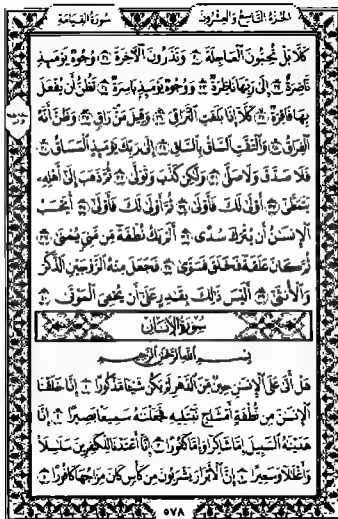 الجزء التاسع والعشرون
سورة القيامة
كَلَّا بَلْ تُحِبُّونَ الْعَاجِلَةَ ٢٠ وَتَذَرُونَ الْآخِرَةَ ٢١ وُجُوهٌ يَوْمَئِذٍ
نَاضِرَةٌ ٢٢ إِلَى رَبِّهَا نَاظِرَةٌ ٢٣ وَوُجُوهٌ يَوْمَئِذٍ بَاسِرَةٌ ٢٤ تَظُنُّ أَن يُفْعَلَ
بِهَا فَاقِرَةٌ ٢٥ كَلَّا إِذَا بَلَغَتِ التَّرَاقِيَ ٢٦ وَقِيلَ مَنْ رَاقٍ ٢٧ وَظَنَّ أَنَّهُ
الْفِرَاقُ ٢٨ وَالْتَفَّتِ السَّاقُ بِالسَّاقِ ٢٩ إِلَى رَبِّكَ يَوْمَئِذٍ الْمَسَاقُ ٣٠
فَلَا صَدَّقَ وَلَا صَلَّى ٣١ وَلَكِن كَذَّبَ وَتَوَلَّى ٣٢ ثُمَّ ذَهَبَ إِلَى أَهْلِهِ
يَتَمَطَّى ٣٣ أَوْلَى لَكَ فَأَوْلَى ٣٤ ثُمَّ أَوْلَى لَكَ فَأَوْلَى ٣٥ أَيَحْسَبُ
الْإِنسَنُ أَن يُتْرَكَ سُدًى ٣٦ أَلَمْ يَكُ نُطْفَةً مِّن مَّنِيٍّ يُمْنَى ٣٧
ثُمَّ كَانَ عَلَقَةً فَخَلَقَ فَسَوَّى ٣٨ فَجَعَلَ مِنْهُ الزَّوْجَيْنِ الذَّكَرَ
وَالْأُنثَى ٣٩ أَلَيْسَ ذَلِكَ بِقَدِرٍ عَلَى أَن يُحْيِيَ الْمَوْتَى ٤٠
سورة الإنسان
بسم الله الرحمن الرحيم
هَلْ أَتَى عَلَى الْإِنسَنِ حِينٌ مِّنَ الدَّهْرِ لَمْ يَكُن شَيْئًا مَّذْكُورًا ١ إِنَّا خَلَقْنَا
الْإِنسَنَ مِن نُّطْفَةٍ أَمْشَاجٍ نَّبْتَلِيهِ فَجَعَلْنَهُ سَمِيعًا بَصِيرًا ٢ إِنَّا
هَدَيْنَهُ السَّبِيلَ إِمَّا شَاكِرًا وَإِمَّا كَفُورًا ٣ إِنَّا أَعْتَدْنَا لِلْكَفِرِينَ سَلَسِلَا
وَأَغْلَلًا وَسَعِيرًا ٤ إِنَّ الْأَبْرَارَ يَشْرَبُونَ مِن كَأْسٍ كَانَ مِزَاجُهَا كَافُورًا ٥
٥٧٨